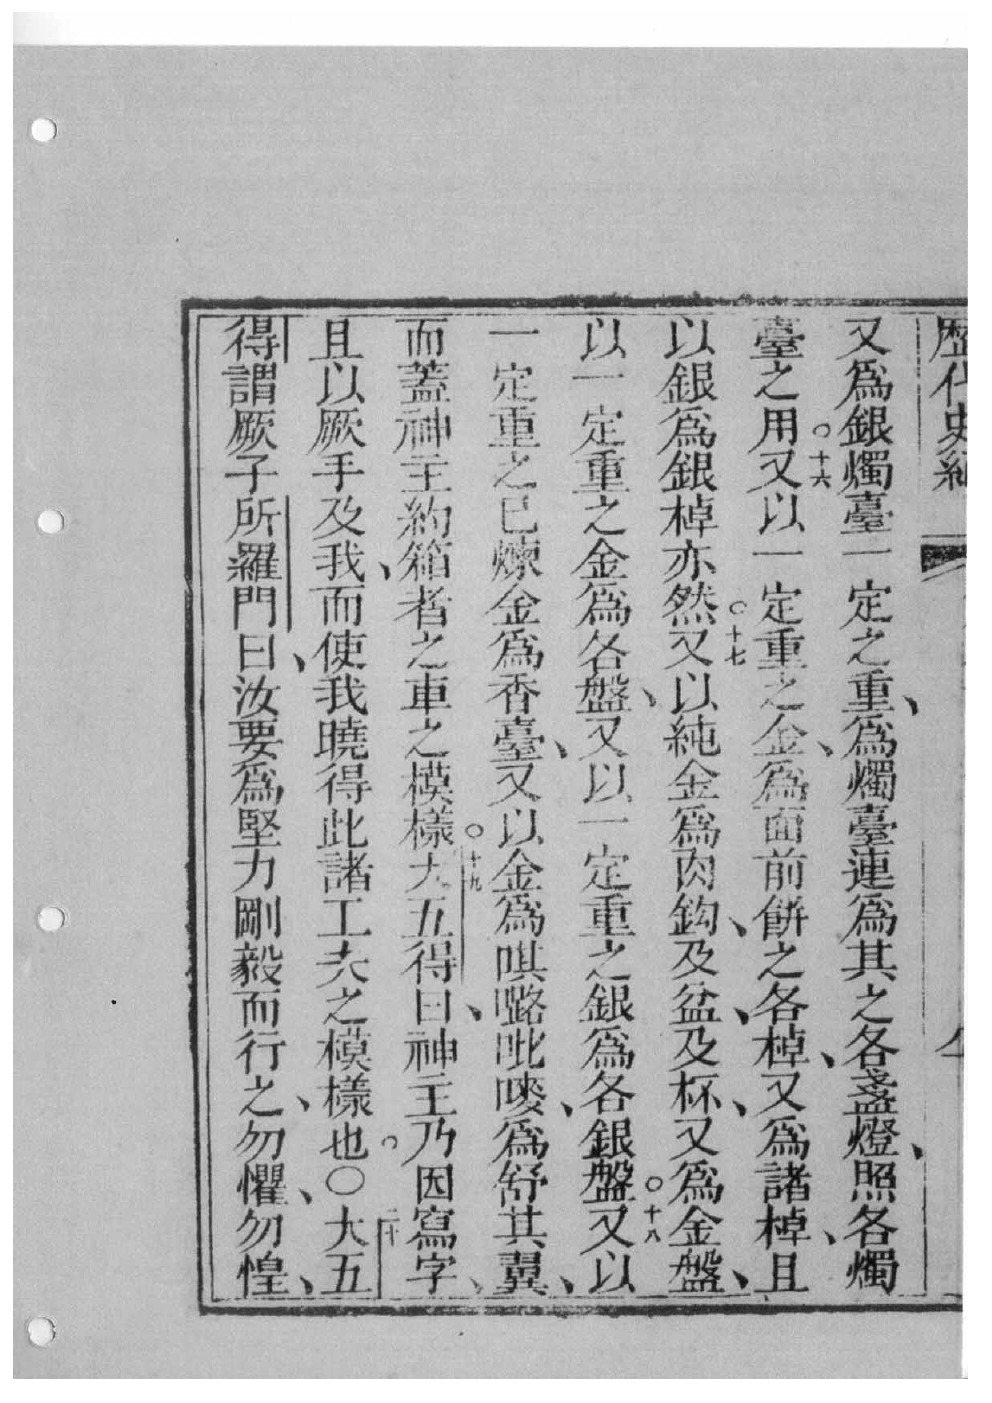 歷代史紀
又爲銀燭臺一定之重、爲燭臺連爲其之各盞燈、照各燭
臺之用。十六又以一定重之金、爲面前餅之各棹、又爲諸棹、且
以銀爲銀棹亦然。十七又以純金爲肉鈎、及盆、及杯、又爲金盤、
以一定重之金爲各盤、又以一定重之銀爲各銀盤。十八又以
一定重之已煉金爲香臺、又以金爲唭𡀔吡唛、爲舒其翼、
而蓋神主約箱者之車之模樣。十九大五得曰、神王乃因寫字、
且以厥手及我、而使我曉得此諸工夫之模樣也。〇二十大五
得謂厥子所羅門曰、汝要爲堅力剛毅而行之、勿懼、勿惶、